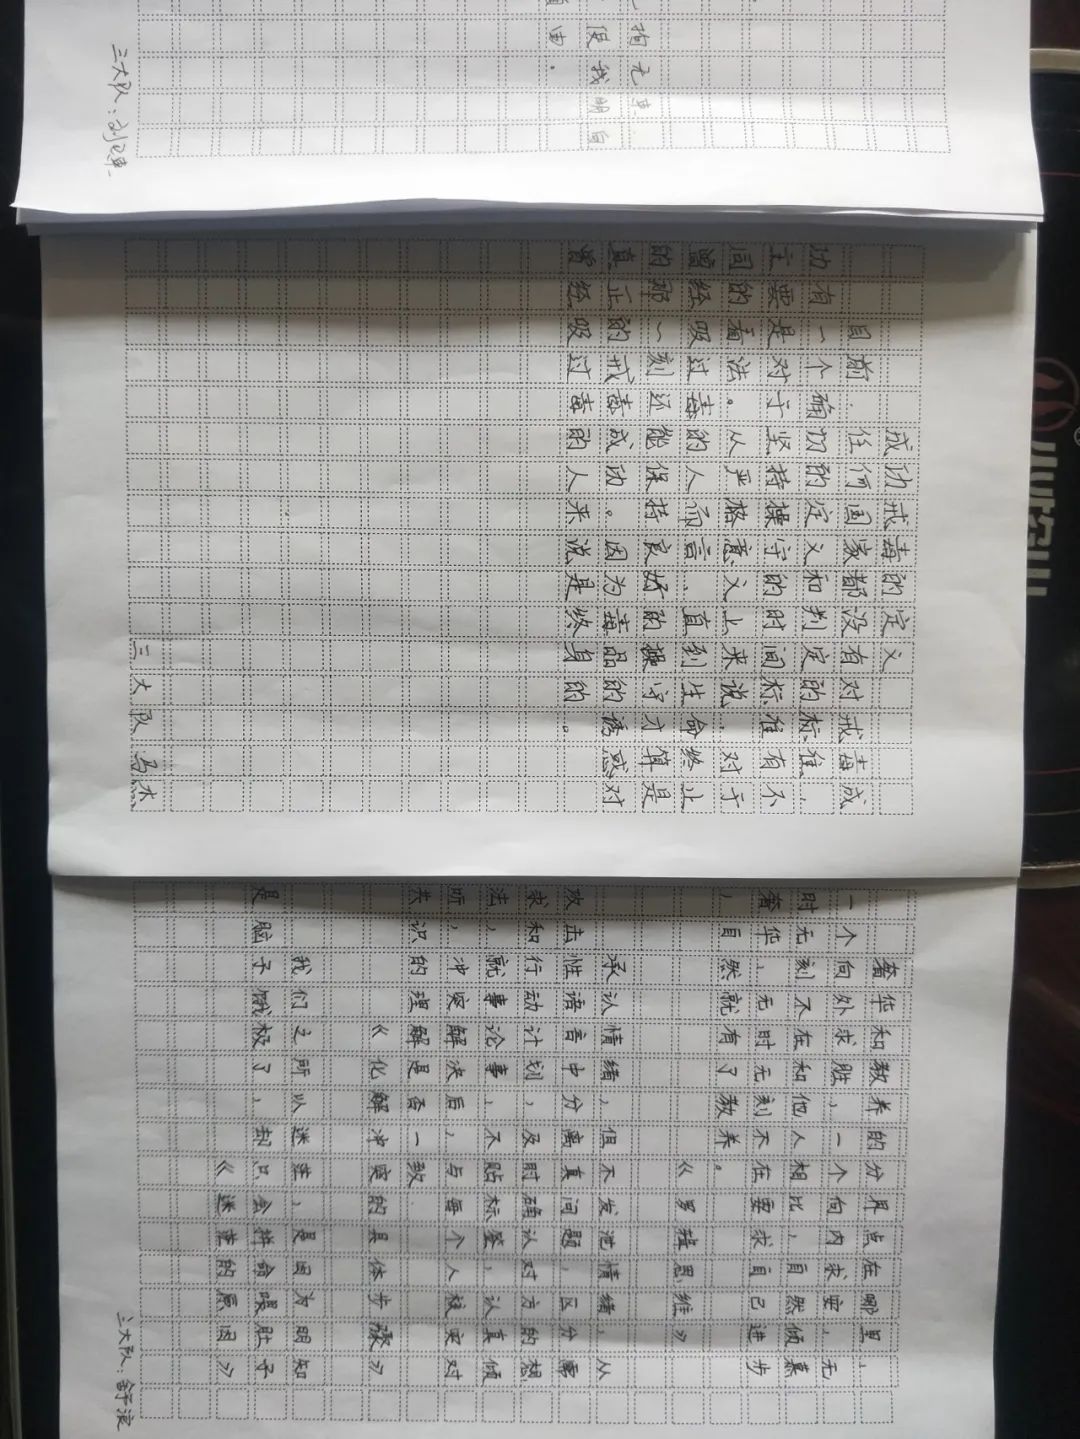 拘无
使我明白
由。
三大队：刘卫東
成功戒毒的定义
目前，任何国家都没有对戒毒成
功有一个确切的定义和判定的标准，
主要是对于坚持操守的时间标准有不
同的看法。从严格意义上来说，对于
曾经吸过毒的人而言，直到生命终止
的那一刻还能保持良好的操守才算是
真正的戒毒成功。因为毒品的诱惑对
曾经吸过毒的人来说是终身的。
三大队 马杰
奢华和教养的分界点在哪里，
一个向外求胜，一个向内求安，无
时无刻不在和他人相比，自然倾慕
奢华，无时无刻不在要求自己进步
，自然就有了教养。
《罗辑思维》
承认情绪，但不发泄情绪，从
攻击性语言中分离真问题，区分需
求和行动计划，及时确认对方的想
法，就事论事，不贴标签，认真倾
听，冲突解决后，与每个人核实对
共识的理解是否一致
《化解冲突的具体步骤》
我们之所以迷茫，是因为明知
是脑子饿极了，却只会拼命喂肚子
《迷茫的原因》
三大队：舒波